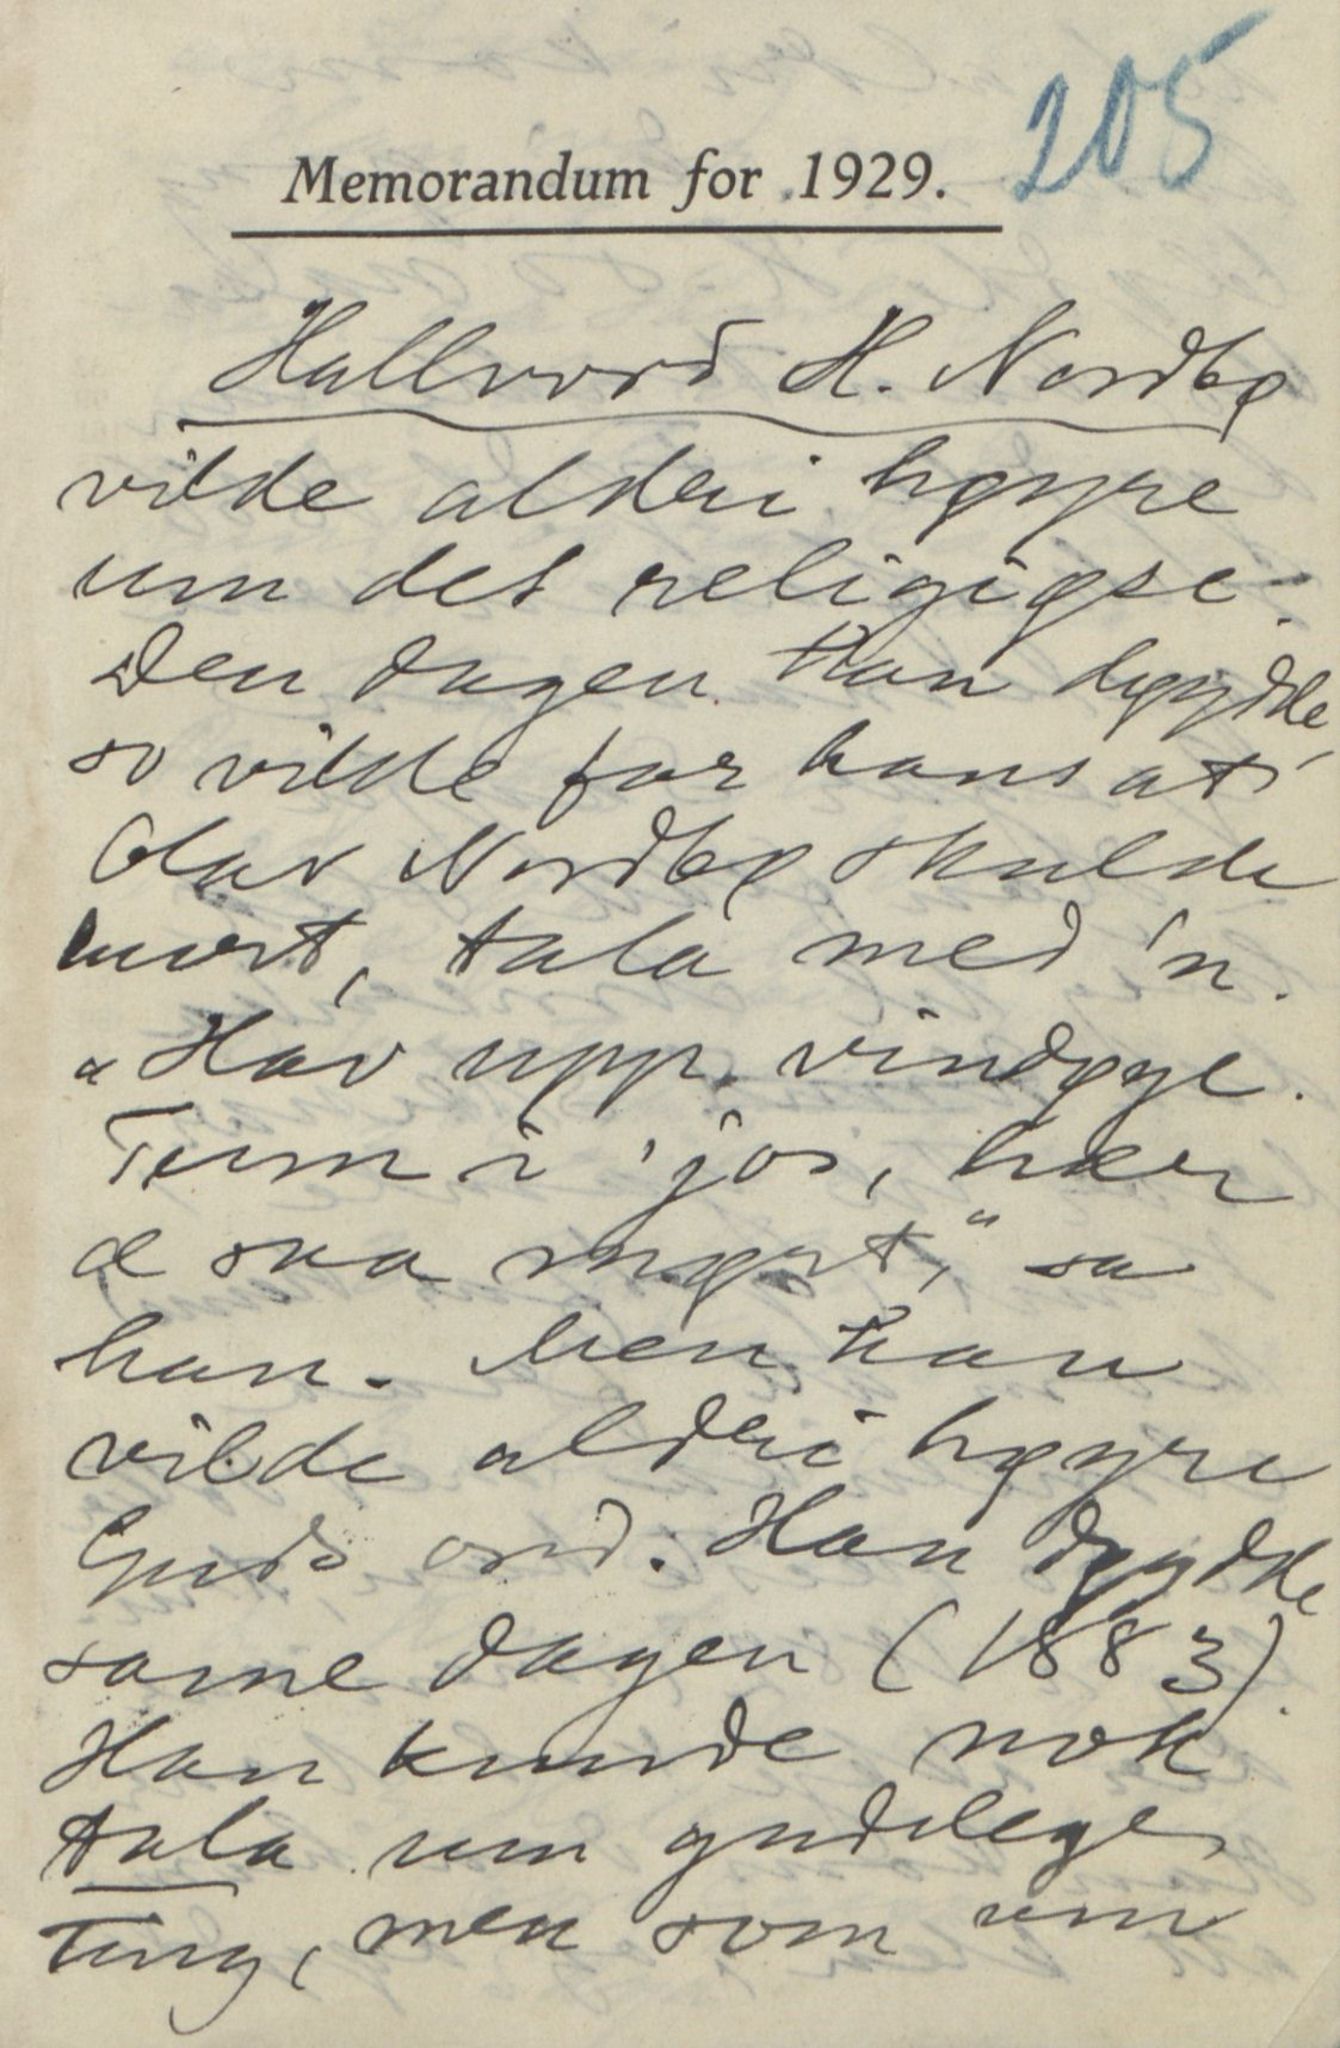 205
Memorandum for 1929.
Hallvord H. Nordbø
vilde aldri høyre
um det religiøse.
Den dagen han døydde,
so vilde far hans at
Olav Nordbø skulde
burt, tala med 'n.
"Hav upp vindøye.
Tum i 'jos, hær
æ saa myrt," sa
han. Men han
vilde aldri høyre
Guds ord. Han døydde
same dagen (1883).
Han kunde nok
tala um gudelege
ting, men som um